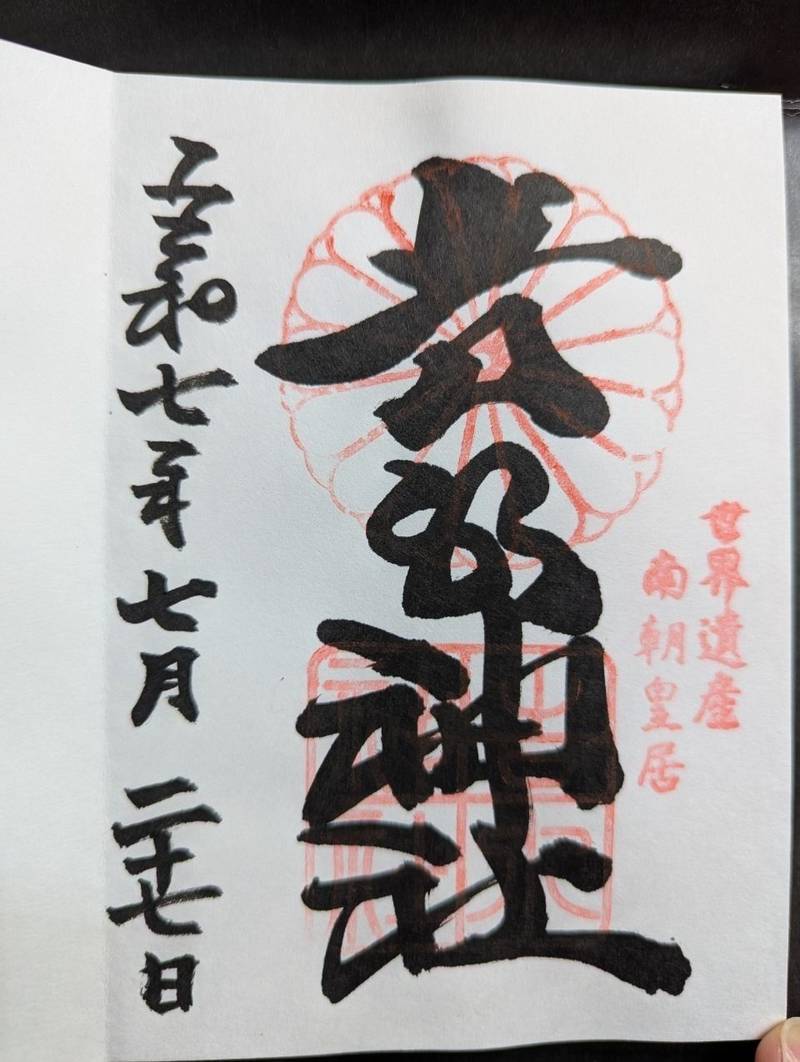 世界遺産
南朝皇居
吉水神社
令和七年七月二十七日